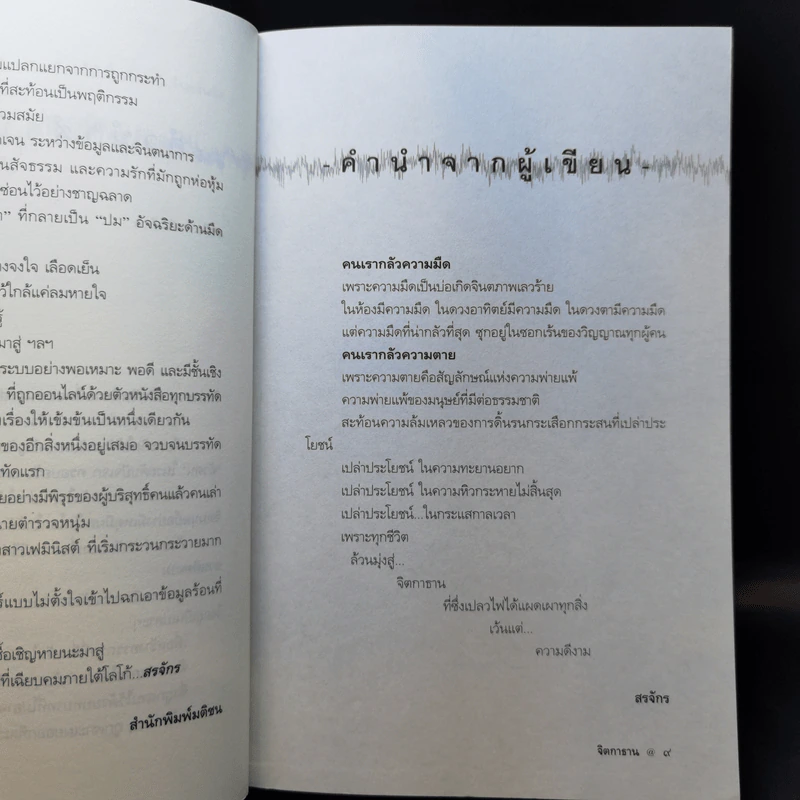 แปลกแยกจากการถูกกระทำ
ที่สะท้อนเป็นพฤติกรรม
วมสมัย
เจน ระหว่างข้อมูลและจินตนาการ
นสัจธรรม และความรักที่มักถูกห่อหุ้ม
ซ่อนไว้อย่างชาญฉลาด
” ที่กลายเป็น “ปม” อัจฉริยะด้านมืด
งจงใจ เลือดเย็น
ว้ใกล้แค่ลมหายใจ
มาสู่ ฯลฯ
ระบบอย่างพอเหมาะ พอดี และมีชั้นเชิง
ที่ถูกออนไลน์ด้วยตัวหนังสือทุกบรรทัด
เรื่องให้เข้มข้นเป็นหนึ่งเดียวกัน
ของอีกสิ่งหนึ่งอยู่เสมอ จวบจนบรรทัด
ทัดแรก
ยอย่างมีพิรุธของผู้บริสุทธิ์คนแล้วคนเล่า
ายตำรวจหนุ่ม
งสาวเฟมินิสต์ ที่เริ่มกระวนกระวายมาก
ร์แบบไม่ตั้งใจเข้าไปฉกเอาข้อมูลร้อนที่
ชื้อเชิญหายนะมาสู่
ที่เฉียบคมภายใต้โลโก้...สรจักร
สำนักพิมพ์มติชน
- คำนำจากผู้เขียน -
คนเรากลัวความมืด
เพราะความมืดเป็นบ่อเกิดจินตภาพเลวร้าย
ในห้องมีความมืด ในดวงอาทิตย์มีความมืด ในดวงตามีความมืด
แต่ความมืดที่น่ากลัวที่สุด ซุกอยู่ในซอกเร้นของวิญญาณทุกผู้คน
คนเรากลัวความตาย
เพราะความตายคือสัญลักษณ์แห่งความพ่ายแพ้
ความพ่ายแพ้ของมนุษย์ที่มีต่อธรรมชาติ
สะท้อนความล้มเหลวของการดิ้นรนกระเสือกกระสนที่เปล่าประ
โยชน์
เปล่าประโยชน์ ในความทะยานอยาก
เปล่าประโยชน์ ในความหิวกระหายไม่สิ้นสุด
เปล่าประโยชน์...ในกระแสกาลเวลา
เพราะทุกชีวิต
ล้วนมุ่งสู่...
จิตกาธาน
ที่ซึ่งเปลวไฟได้แผดเผาทุกสิ่ง
เว้นแต่...
ความดีงาม
สรจักร
จิตกาธาน @ ๙